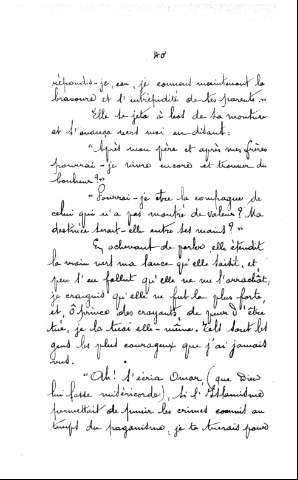 40
répondis-je, car, je connais maintenant la
bravoure et l'intrépidité de tes parents."
Elle se jeta à bas de sa monture
et s'avança vers moi en disant:
"Après mon père et après mes frères
pourrai-je vivre encore et trouver du
bonheur?"
"Pourrai-je être la compagne de
celui qui n'a pas montré de valeur? Ma
destinée serait-elle entre ses mains?"
En achevant de parler elle étendit
la main vers ma lance qu'elle saisit, et
peu s'en fallut qu'elle ne me l'arrachât,
je craignis qu'elle ne fut la plus forte,
et, ô prince des croyants, de peur d'être
tué, je la tuai elle-même. Tels sont les
gens les plus courageux que j'ai jamais
vus.
"Ah! s'écria Omar, (que Dieu
lui fasse miséricorde), si l'Islamisme
permettait de punir les crimes commis au
temps du paganisme, je te tuerais pour